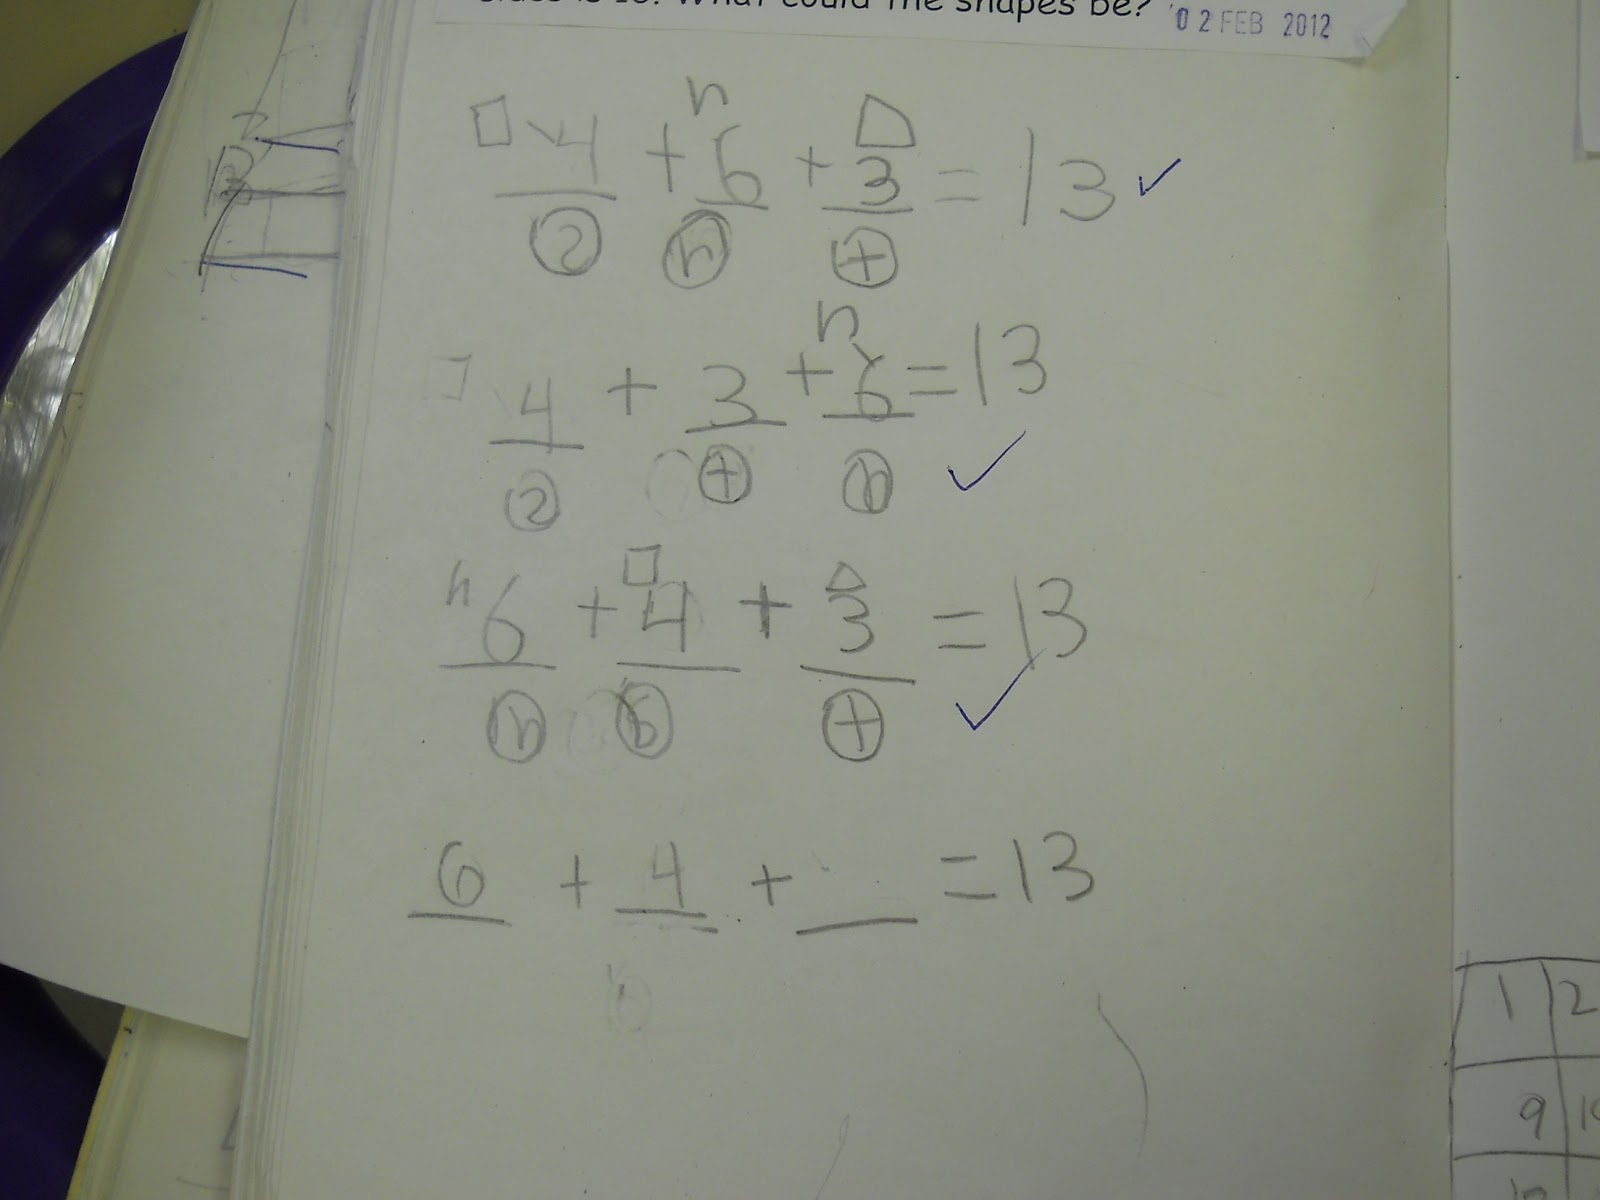 What could the shapes be?
02 FEB 2012
n
4 + 6 + 3 = 13 ✓
2 h +
n
4 + 3 + 6 = 13
2 + h ✓
h
6 + 4 + 3 = 13
h 6 + ✓
6 + 4 + _ = 13
1 2
9